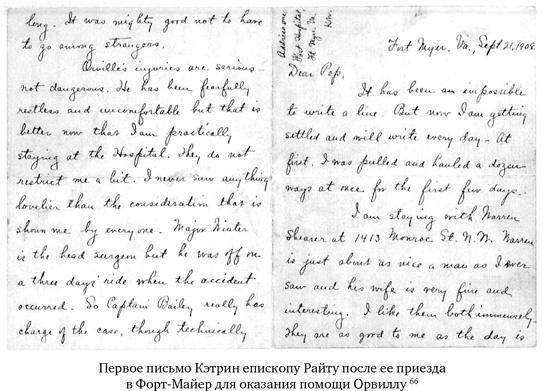 Fort Myer, Va., Sept 21, 1908.
Dear Pop,
It has been an impossible
to write a line. But now I am getting
settled and will write every day - At
first, I was pulled and hauled a dozen
ways at once for the first few days.
I am staying with Warren
Shearer at 1413 Monroe St. N.W. Warren
is just about as nice a man as I ever
saw and his wife is very fine and
interesting. I like them both immensely.
They are as good to me as the day is
long. It was mighty good not to have
to go among strangers.
Orville's injuries are serious -
not dangerous. He has been fearfully
restless and uncomfortable but that is
better now that I am practically
staying at the Hospital. They do not
restrict me a bit. I never saw anything
lovelier than the consideration that is
shown me by everyone. Major Winter
is the head surgeon but he was off on
a three days' ride when the accident
occurred. So Captain Bailey really has
charge of the case, though technically
Address me
Post Hospital,
Ft Myer Va.
Первое письмо Кэтрин епископу Райту после ее приезда
в Форт-Майер для оказания помощи Орвиллу 66